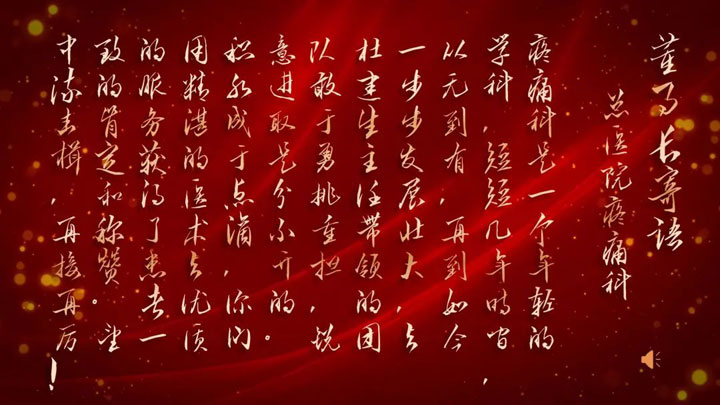 董事长寄语
总医院疼痛科
疼痛科是一个年轻的
学科,短短几年时间,
从无到有,再到如今
一步步发展壮大,与
杜建生主任带领的团
队敢于勇挑重担,锐
意进取是分不开的。
积水成于点滴,你们
用精湛的医术与优质
的服务获得了患者一
致的肯定和称赞。望
中流击楫,再接再厉!